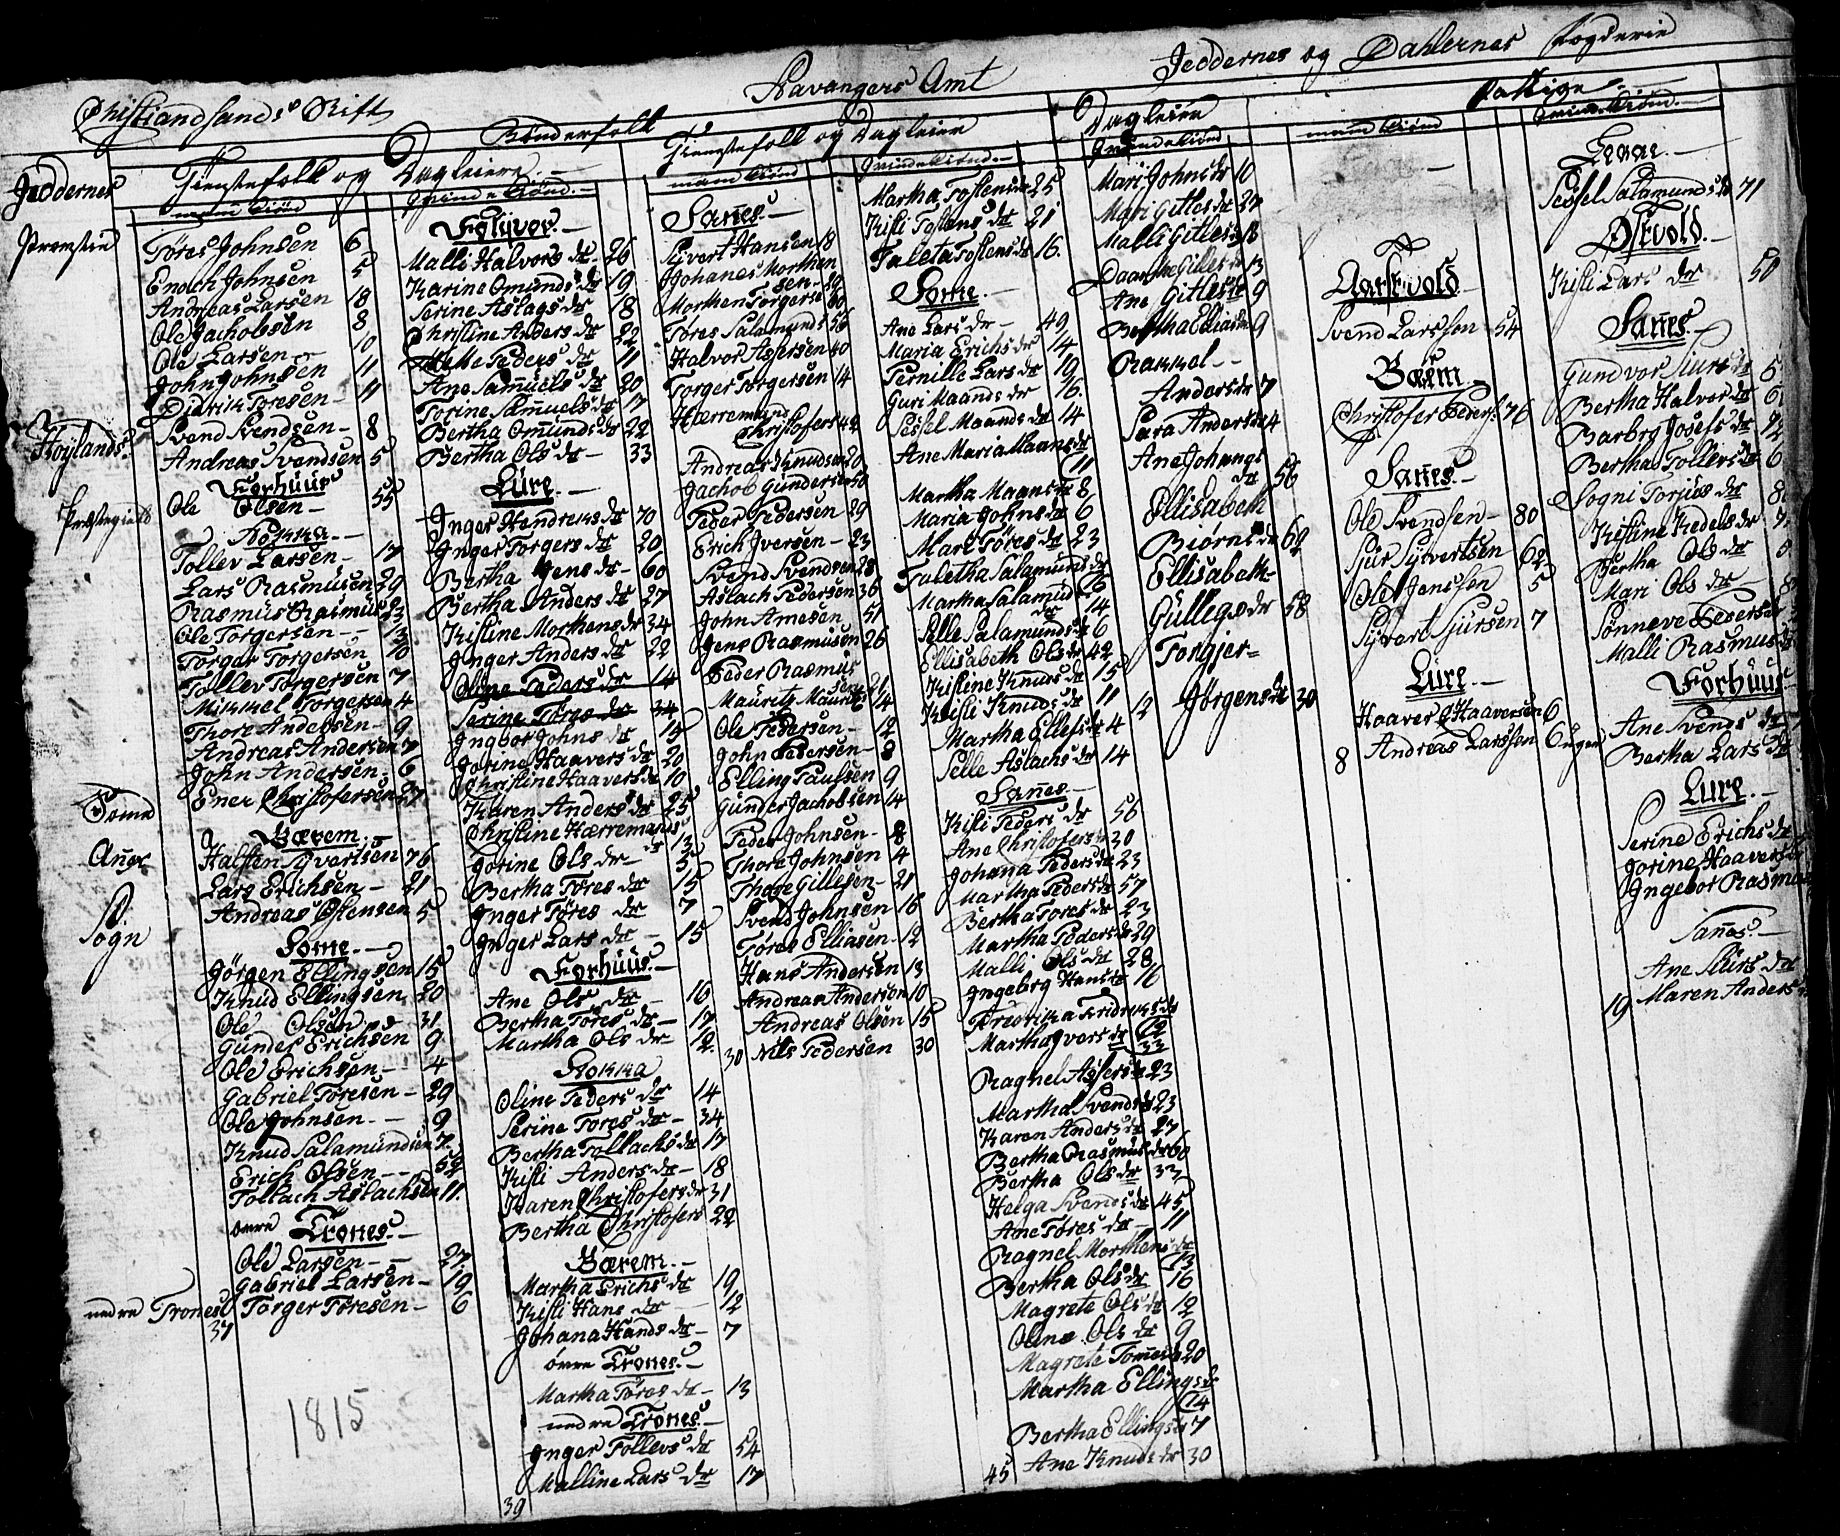 Christiandsands Stift
Stavangers Amt
Jeddernes og Dahlernes Fogderie
Bønderfolk
Tienestefolk og Dagleiere
Tienestefolk og Dagleiere
Dagleiere
Fattige
Jeddernes
Høylands
Præstegield
Sogn
nedre Trones
mand kiønd
Tøres Johnsen 6
Enoch Johnsen 5
Andreas Larsen 18
Ole Jachobsen 8
Ole Larsen 10
John Johnsen 11
Svend Svendsen 8
Andreas Svendsen 5
Forhuus
Ole Olsen 55
Stokka
Tollev Larsen 17
Lars Rasmusen 29
Rasmus Rasmus 23
Ole Torgersen 13
Torger Torgersen 10
Tollev Torgersen 7
Mikkel Torgersen 4
Thore Andersen 9
Andreas Andersen 7
John Andersen 6
Ener Christofersen 27
Bærem
Halsten Syvertsen 76
Lars Erichsen 21
Andreas Østensen 5
Some
Jørgen Ellingsen 15
Knud Ellingsen 20
Ole Olsen 31
Gunder Erichsen 9
Ole Erichsen 4
Gabriel Toresen 29
Ole Johnsen 9
Knud Salamundsen 7
Erich Olsen 52
Tollach Aslachsen 11
øvre Trones
Ole Larsen 27
Gabriel Larsen 19
Torger Tøresen 6
37
1815
qvinde kiønd
Malli Halvors dr 26
Karine Omunds dr 19
Serine Aslags dr 18
Christine Anders dr 22
Mette Peders dr 11
Ane Samuels dr 20
Torine Samuels dr 17
Bertha Omunds dr 22
Bertha Ols dr 33
Lure
Inger Hendreks dr 70
Inger Torgers dr 20
Bertha Jens dr 60
Bertha Anders dr 27
Kistine Morthens dr 34
Inger Anders dr 22
Oline Peders dr 14
Serine Tores dr 34
Ingbor Johns dr 15
Jorine Haavers dr 20
Christine Haavers dr 10
Karen Anders dr 25
Christine Hærremands dr 13
Jorine Ols dr 5
Bertha Tøres dr 15
Inger Tøres dr 7
Inger Lars dr 15
Forhuus
Ane Ols dr 16
Bertha Tøres dr 17
Martha Ols dr 12
Stokka
Oline Peders dr 14
Serine Tores dr 34
Bertha Tollachs dr 17
Kisti Anders dr 18
Karen Christofers dr 31
Bertha Christofers 22
Bærem
Martha Erichs dr 19
Kisti Hans dr 12
Johana Hands dr 7
øvre Trones
Martha Tøres dr 13
nedre Trones
Inger Tollevs dr 54
Malline Lars dr 17
39
mand kiønd
Sanes
Syvert Hansen 18
Johanes Morthensen 29
Morthen Torgersen 60
Tores Salamunds 56
Halvor Assersen 40
Torger Torgersen 14
Hærremand Christofers 42
Andreas Knudsen 20
Jachob Gundersen 50
Peder Pedersen 29
Erich Iversen 23
Svend Svendsen 28
Aslach Pedersen 36
John Arnesen 51
Jens Rasmusen 26
Peder Rasmusen 21
Mauritz Mauritz 14
Ole Pedersen 12
John Pedersen 8
Elling Paulsen 9
Gunder Jachobsen 14
Peder Johnsen 8
Thore Johnsen 4
Thore Gitlesen 21
Svend Johnsen 16
Tores Elliasen 12
Hans Andersen 13
Andreas Andersen 10
Andreas Olsen 15
Nils Pedersen 30
30
qvinde kiønd
Martha Tostens dr 25
Kisti Tostens dr 21
Taleta Tostens dr 16
Some
Ane Lars dr 49
Maria Erichs dr 14
Pernille Lars dr 19
Guri Maands dr 16
Sessel Maands dr 14
Ane Maria Maans dr 11
Martha Maans dr 8
Maria Johns dr 6
Mari Tøres dr 23
Taletha Salamunds dr 16
Martha Salamund dr 14
Pelle Salamunds dr 6
Ellisabeth Ols dr 42
Kistine Knuds dr 15
Kisti Knuds dr 11
Martha Ellefs dr 4
Pelle Aslachs dr 14
Sanes
Kisti Peders dr 56
Ane Christofers dr 30
Johana Peders dr 23
Martha Peders dr 57
Bertha Tores dr 23
Martha Peders dr 29
Malli Ols dr 28
Ingebrg Hans dr 16
Fredrika Fridreks dr 12
Martha Ivers dr 33
Ragnel Assers dr 23
Martha Svends dr 23
Karen Anders dr 27
Bertha Rasmus dr 60
Bertha Ols dr 33
Helga Svends dr 45
Ane Tøres dr 11
Ragnel Morthens dr 13
Bertha Ols dr 16
Magrete Ols dr 12
Oline Ols dr 9
Magrete Tomes dr 20
Martha Ellings dr 14
Bertha Ellings dr 7
Ane Knuds dr 30
45
qvinde kiønd
Mari Johns dr 10
Mari Gitles dr 27
Malli Gitles dr 18
Daarthe Gitles dr 13
Ane Gitles dr 9
Bertha Ellias dr 9
Rakkel Anders dr 7
Sara Anders dr 4
Ane Johanes dr 56
Ellisabeth Biørns dr 62
Ellisabeth Gulleges dr 58
Torgjer Jørgens dr 30
12
mand kiønd
Aarsvold
Svend Larssen 54
Bærem
Christofer Peders 76
Sanes
Ole Svendsen 80
Sjur Syvertsen 62
Ole Jenssen 5
Syvert Sjursen 7
Lure
Haaver Haaversen 6
Andreas Larssen 6 uger
8
qvinde kiønd
Sessel Salamunds dr 71
Østvold
Kisti Lars dr 50
Sanes
Gundvor Siurs dr 5
Bertha Halvor dr 6
Barbrg Josefs dr 72
Bertha Tollevs dr 6
Sogni Torjus dr 8
Kistine Kedels dr 7
Bertha Ols dr
Mari Ols dr 8
Sønneve Peders dr
Malli Rasmus dr
Forhuus
Ane Svends dr
Bertha Lars dr
Lure
Serine Erichs dr
Jorine Haavers dr
Ingebor Rasmus
Sanes
Ane Siurs dr
Maren Anders
19